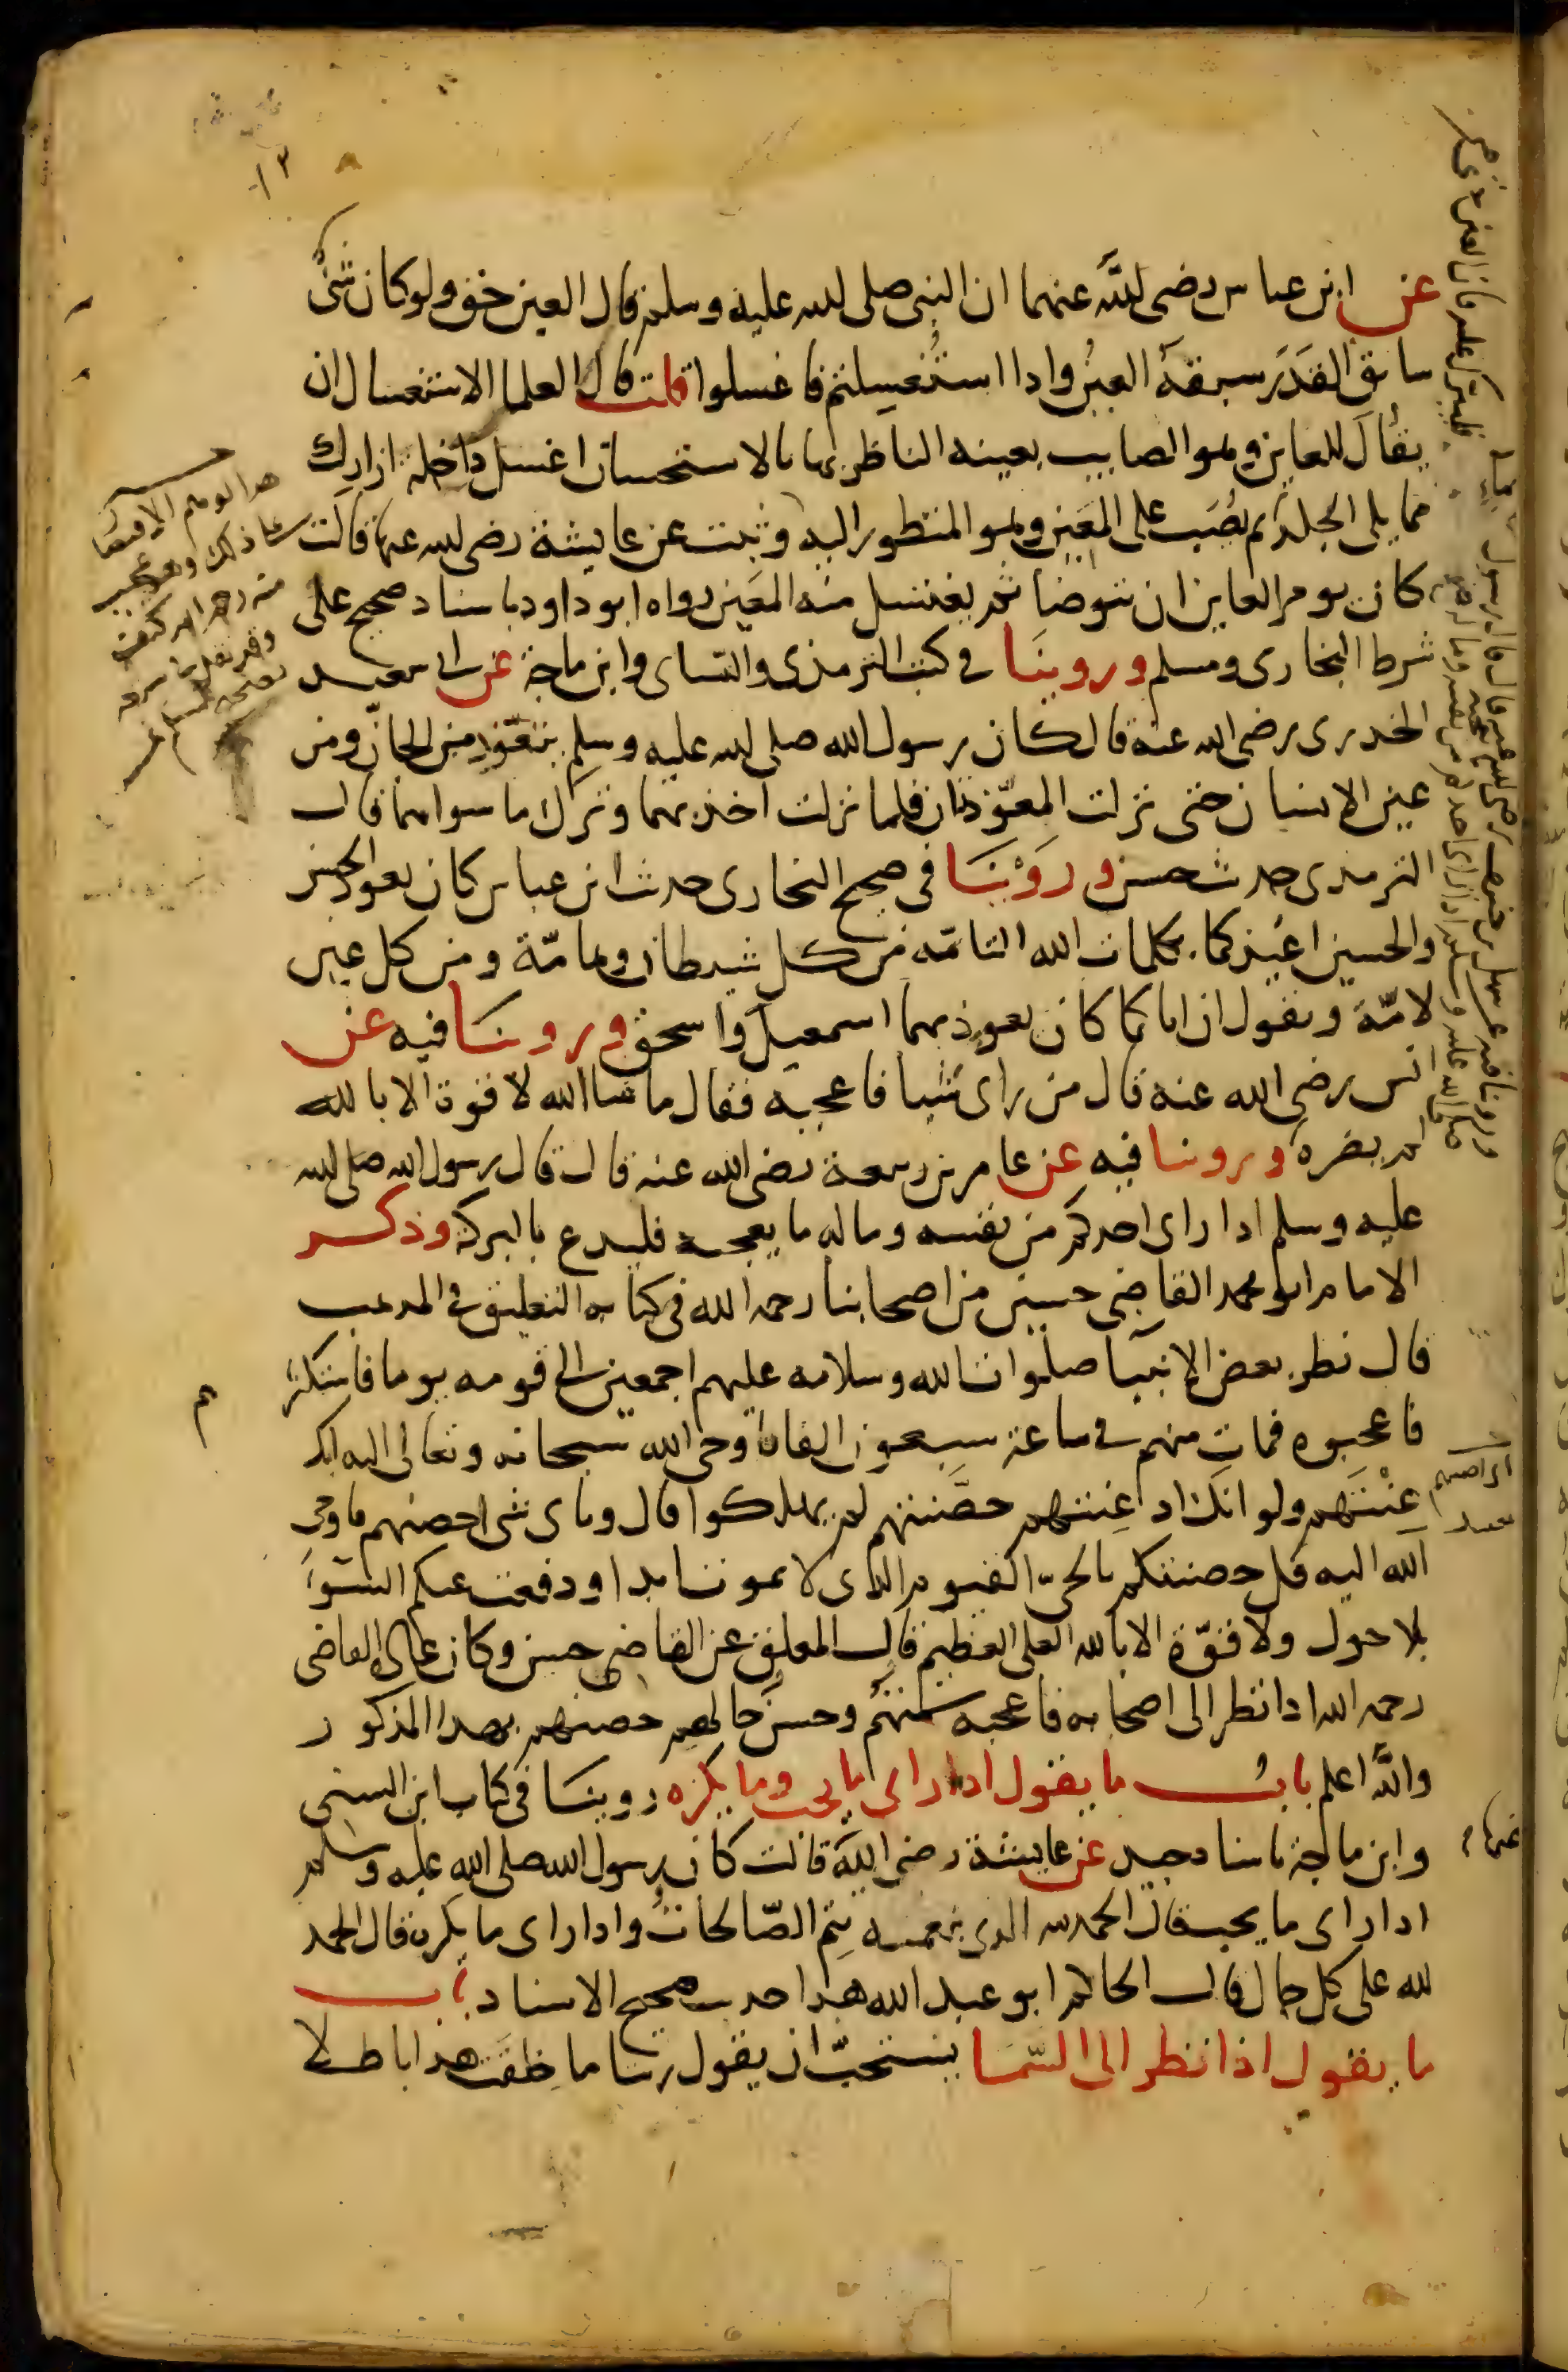 عن ابن عباس رضي الله عنهما ان النبي صلى الله عليه وسلم قال العين حق ولو كان شئ
سابق القدر سبقه العين واذا استغسلتم فاغسلوا قلت قال العلما الاستغسال ان
يقال للعاين وهو الصايب بعينه الناظر بها بالاستحسان اغسل داخلة ازارك
مما يلي الجلد ثم يُصَب على المعين وهو المنظور اليه وثبت عن عايشة رضي الله عنها قالت
كان يومر العاين ان يتوضا ثم يغتسل منه المعين رواه ابو داود باسناد صحيح على
شرط البخاري ومسلم وروينا في كتب الترمذي والنساي وابن ماجة عن ابي سعيد
الخدري رضي الله عنه قال كان رسول الله صلى الله عليه وسلم يتعوّذ من الجانّ ومن
عين الانسان حتى نزلت المعوّذتان فلما نزلت اخذ بهما وترك ما سواهما قال
الترمذي حديث حسن وروينا في صحيح البخاري حديث ابن عباس كان يعوذ الحسن
والحسين اعيذكما بكلمات الله التامّه من كل شيطان وهامّة ومن كل عين
لامّة ويقول ان اباكما كان يعوذ بهما اسمعيل واسحق وروينا فيه عن
انس رضي الله عنه قال من راى شيا فاعجبه فقال ما شا الله لا قوة الا بالله
لم يضره وروينا فيه عن عامر بن ربيعة رضي الله عنه قال قال رسول الله صلى الله
عليه وسلم اذا راى احدكم من نفسه وماله ما يعجبه فليدع بالبركة وذكر
الامام ابو محمد القاضي حسين من اصحابنا رحمه الله في كتابه التعليق في المذهب
قال نظر بعض الانبيا صلوات الله وسلامه عليهم اجمعين الى قومه يوما فاستكثر
فاعجبوه فمات منهم في ساعة سبعون الفا فاوحى الله سبحانه وتعالى اليه انك
عِنْتَهم ولو انك اذ عِنتهم حصَّنتهم لم يهلكوا قال وباي شي احصنهم فاوحى
الله اليه قل حصنتكم بالحيّ القيوم الذي لا يموت ابدا ودفعت عنكم السّوَء
بلا حول ولا قوّة الا بالله العلي العظيم قال المعلق عن القاضي حسين وكان عادة القاضي
رحمه الله اذا نظر الى اصحابه فاعجبه سمتهم وحسن حالهم حصنهم بهذا المذكور
والله اعلم باب ما يقول اذا راى ما يحب وما يكره روينا في كتاب ابن السني
وابن ماجة باسناد جيد عن عايشة رضي الله قالت كان رسول الله صلى الله عليه وسلم
اذا راى ما يحب قال الحمد لله الذي بنعمته تتم الصّالحات واذا راى ما يكره قال الحمد
لله على كل حال قال الحاكم ابو عبد الله هذا حديث صحيح الاسناد باب
ما يقول اذا نظر الى السّما يستحبّ ان يقول ربنا ما خلقت هذا باطلا
عنها